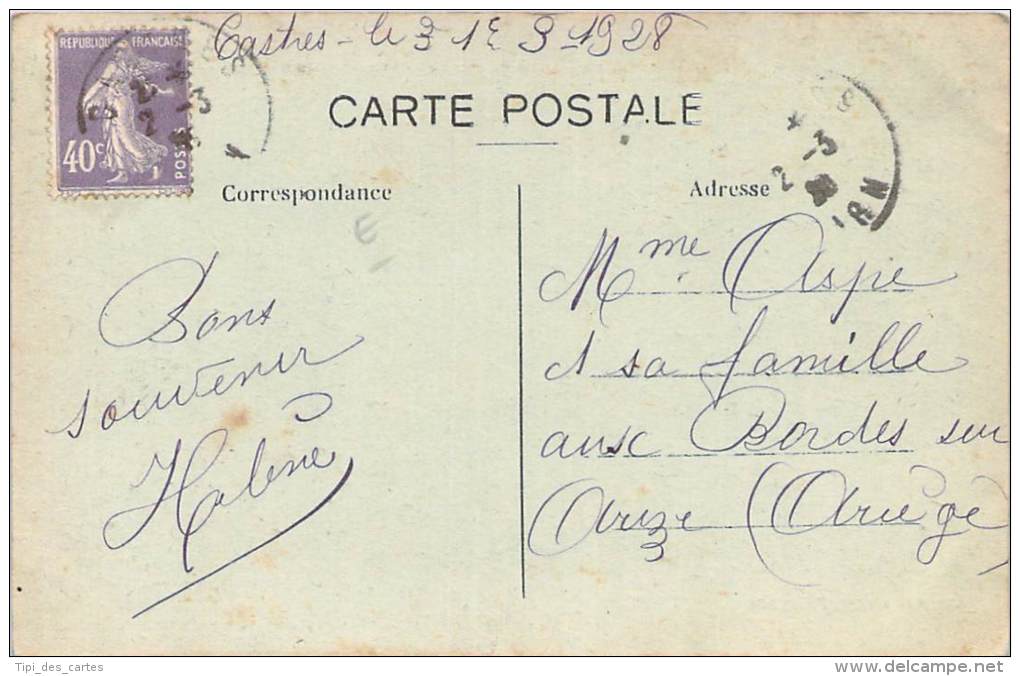 Castres - le 3 1E 3 - 1928
REPUBLIQUE FRANCAISE
40c
POSTES
CARTE POSTALE
Correspondance
Adresse
2 -3
TARN
Bons
souvenir
Helene
Mme Aspe
& sa famille
aux Bordes sur
Arize (Ariège)
Tipi_des_cartes
www.delcampe.net